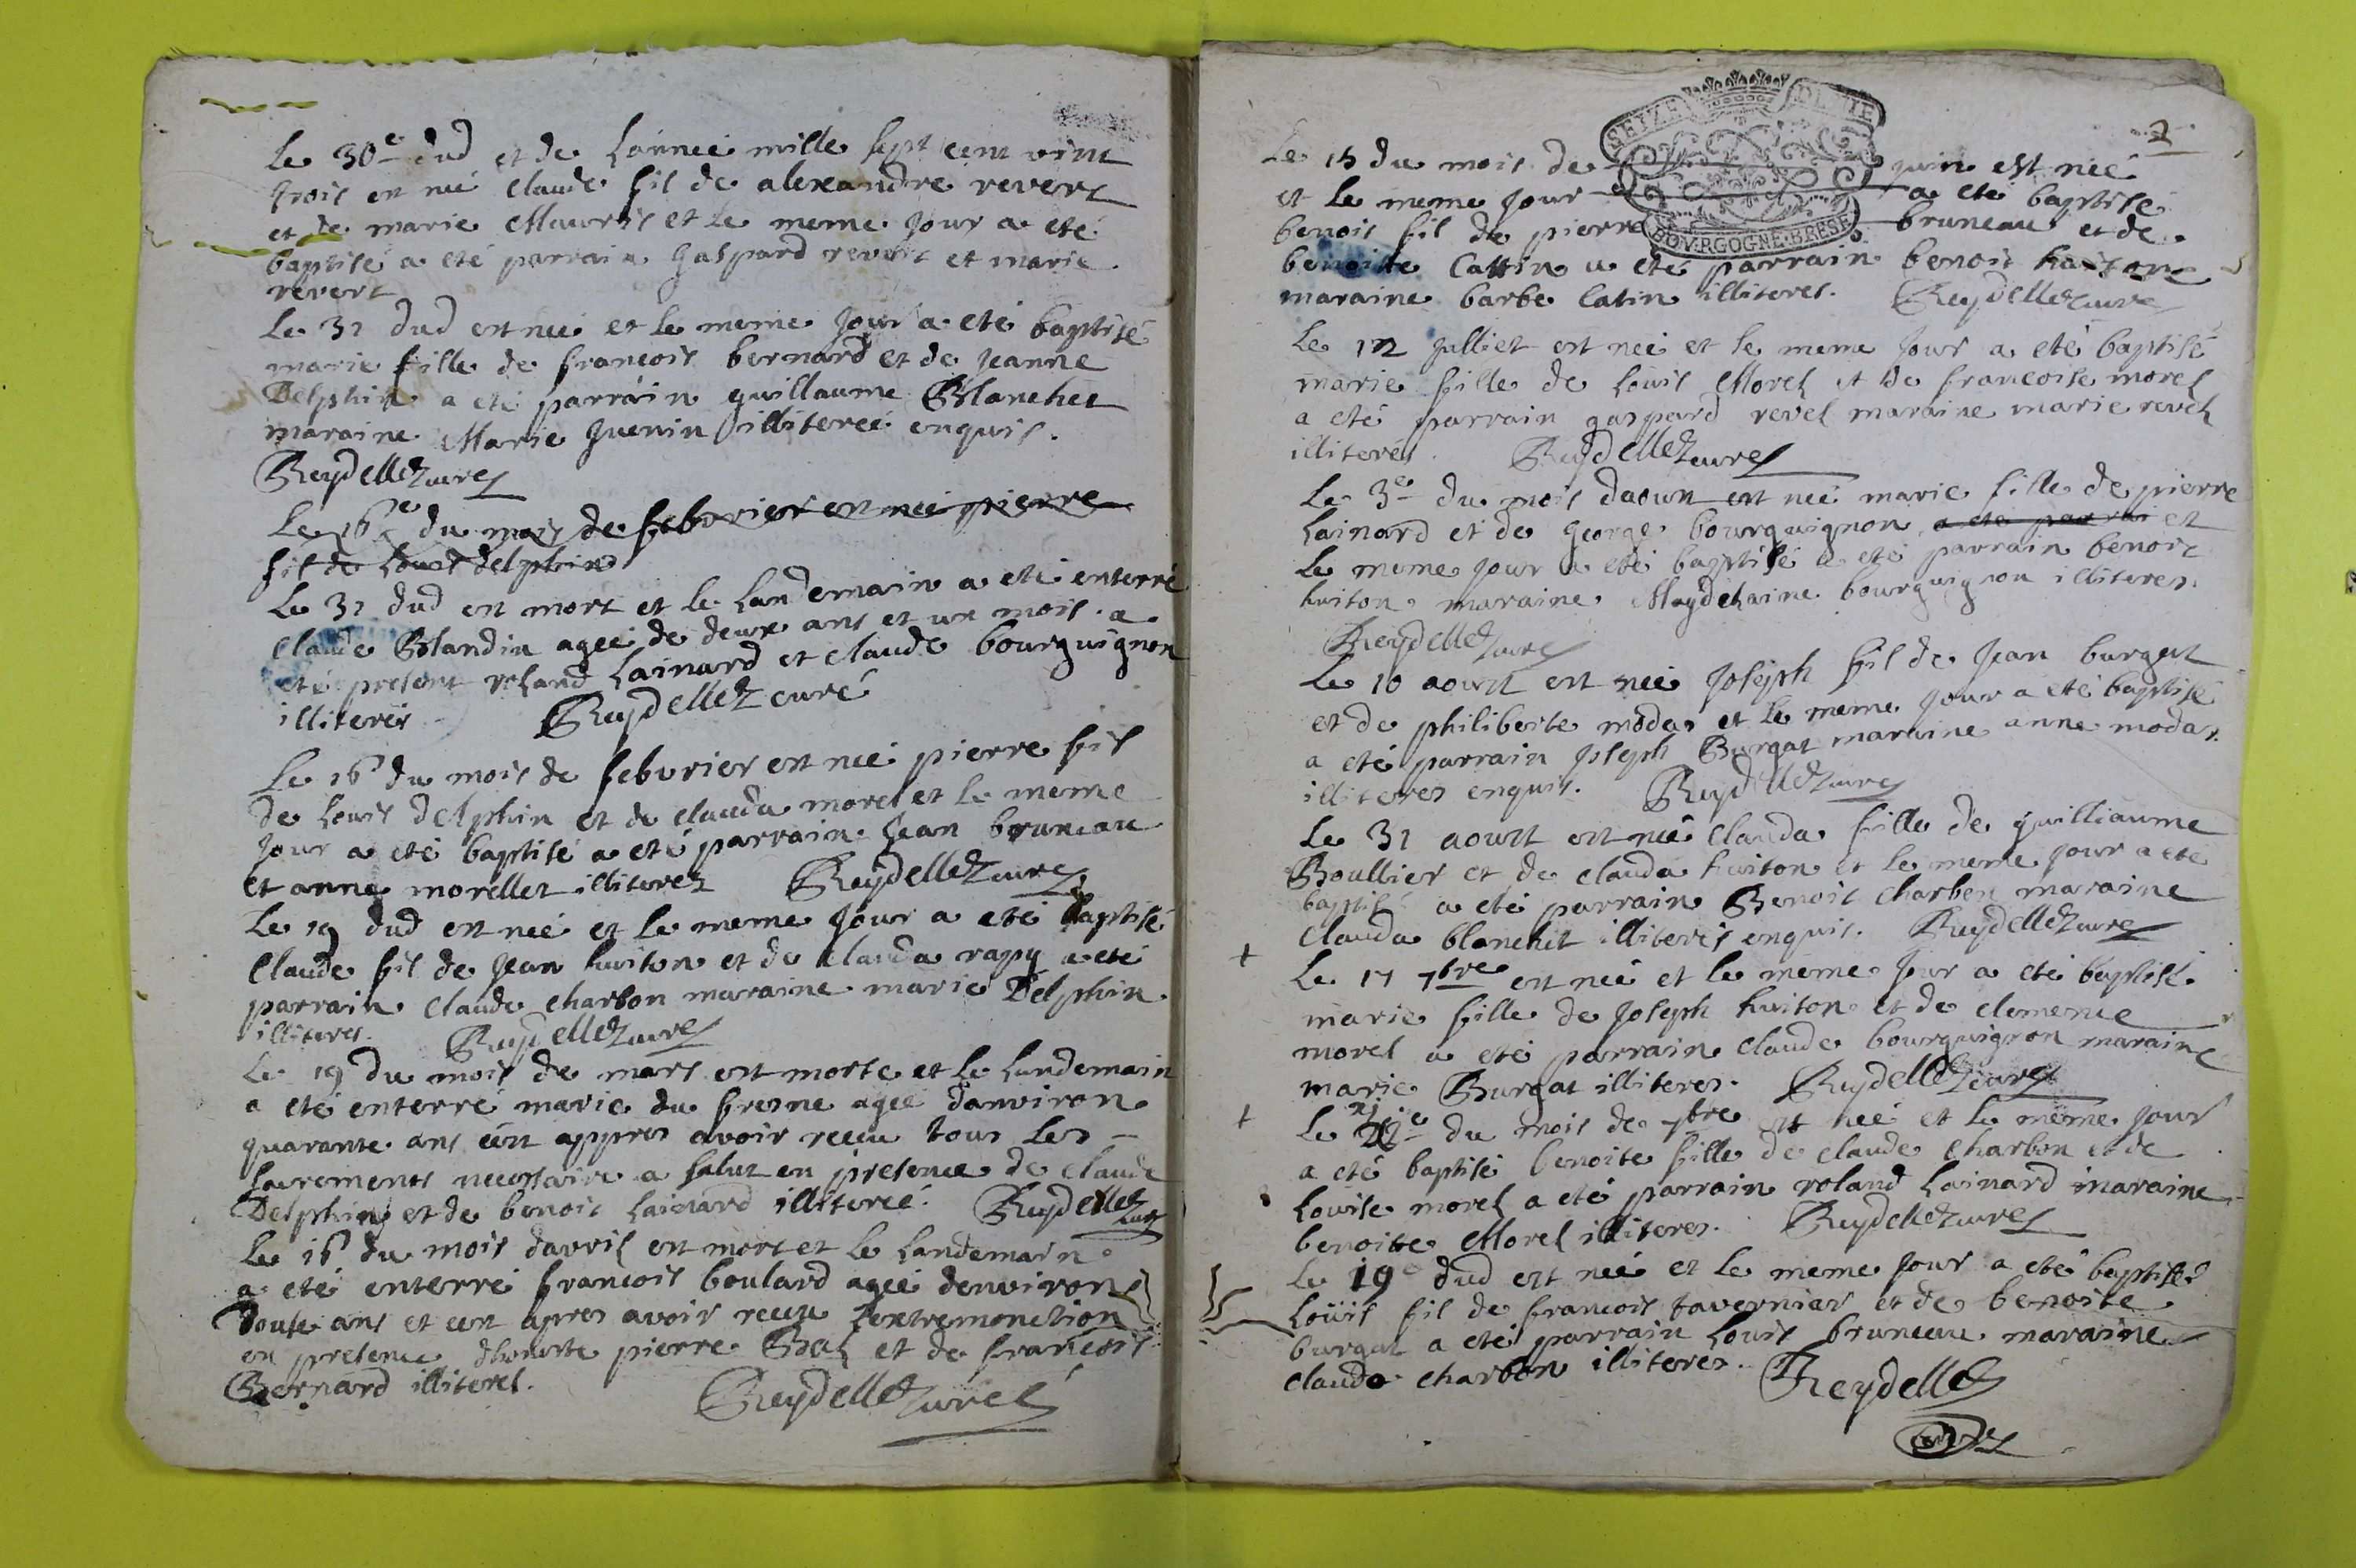 Le 30e dud et de Lannee mille sept cent vint
trois est né Claude fil de alexandre revert
et de marie Mauris et le meme jour a eté
baptisé a eté parrain Gaspard revert et marie
revert
Le 31 dud est neé et le meme jour a eté baptisé
marie fille de francois bernard et de jeanne
Delphin a eté parrain guillaume Blanchet
maraine Marie guenin illitereé enquis.
Reydellet curé
Le 16e du mois de febvrier est neé pierre
fil de Louis delphin
Le 31 dud est mort et le landemain a eté enterré
Claude Blandin ageé de deux ans et un mois a
eté present roland Lainard et claude bourguignon
illiterés Reydellet curé
Le 16 du mois de febvrier est neé pierre fil
de Louis delphin et de clauda morel et le meme
jour a eté baptisé a eté parrain jean bruneau
et anne morellet illiteres Reydellet curé
Le 19 dud est neé et le meme jour a eté baptisé
Claude fil de jean huiton et de clauda rapy a eté
parrain claude charbon maraine marie Delphin
illiteres. Reydellet curé
Le 19 du mois de mars est morte et le landemain
a eté enterré marie du fresne ageé danviron
quarante ans eest appres avoir receu tous les
sacrements necessaire a salut en presence de claude
Delphin et de benoit Lainard illitereé. Reydellet curé
Le 16 du mois davril est mort et le landemain
a eté enterré francois boulard ageé denviron
douse ans et cest apres avoir receu Lextremonction
en presence dhoneste pierre Bal et de francois
Bernard illiterel.
Reydellet curé
2
SEIZE DENIE
BOVRGOGNE·BRESE
Le 15 du mois de juin est neé
et le meme jour a eté baptisé
benoit fil de pierre bruneau et de
benoite Cattin a eté parrain benoit huiton
maraine barbe catin illiteres. Reydellet curé
Le 12 julliet est neé et le meme jour a eté baptisé
marie fille de Louis Morel et de francoise morel
a eté parrain gaspard revel maraine marie revel
illiterés. Reydellet curé
Le 3e du mois daoust est neé marie fille de pierre
Lainard et de george bourguignon a eté parrain et
le meme jour a eté baptisé a eté parrain benoit
huiton maraine Magdelaine bourguignon illiteres.
Reydellet curé
Le 10 aoust est neé joseph fil de jean burgat
et de philiberte modas et le meme jour a eté baptisé
a eté parrain joseph Burgat maraine anne modas
illiteres enquis. Reydellet curé
Le 31 aoust est neé clauda fille de guilliaume
Boullier et de clauda huiton et le meme jour a eté
baptisé a eté parrain Benoit charbon maraine
Clauda blanchet illiterés enquis. Reydellet curé
+ Le 17 7bre est neé et le meme jour a eté baptisé
marie fille de joseph huiton et de clemence
morel a eté parrain claude bourguignon maraine
marie Burgat illiteres. Reydellet curé
+ Le xje du mois de 7bre est neé et le meme jour
a eté baptisé benoite fille de claude charbon et de
Louise morel a eté parrain roland Lainard maraine
benoite Morel illiteres. Reydellet curé
Le 19 dud est neé et le meme jour a eté baptisé
Loüis fil de francois tavernier et de benoite
burgat a eté parrain Louis bruneau maraine
clauda charbon illiteres. Reydellet
curé